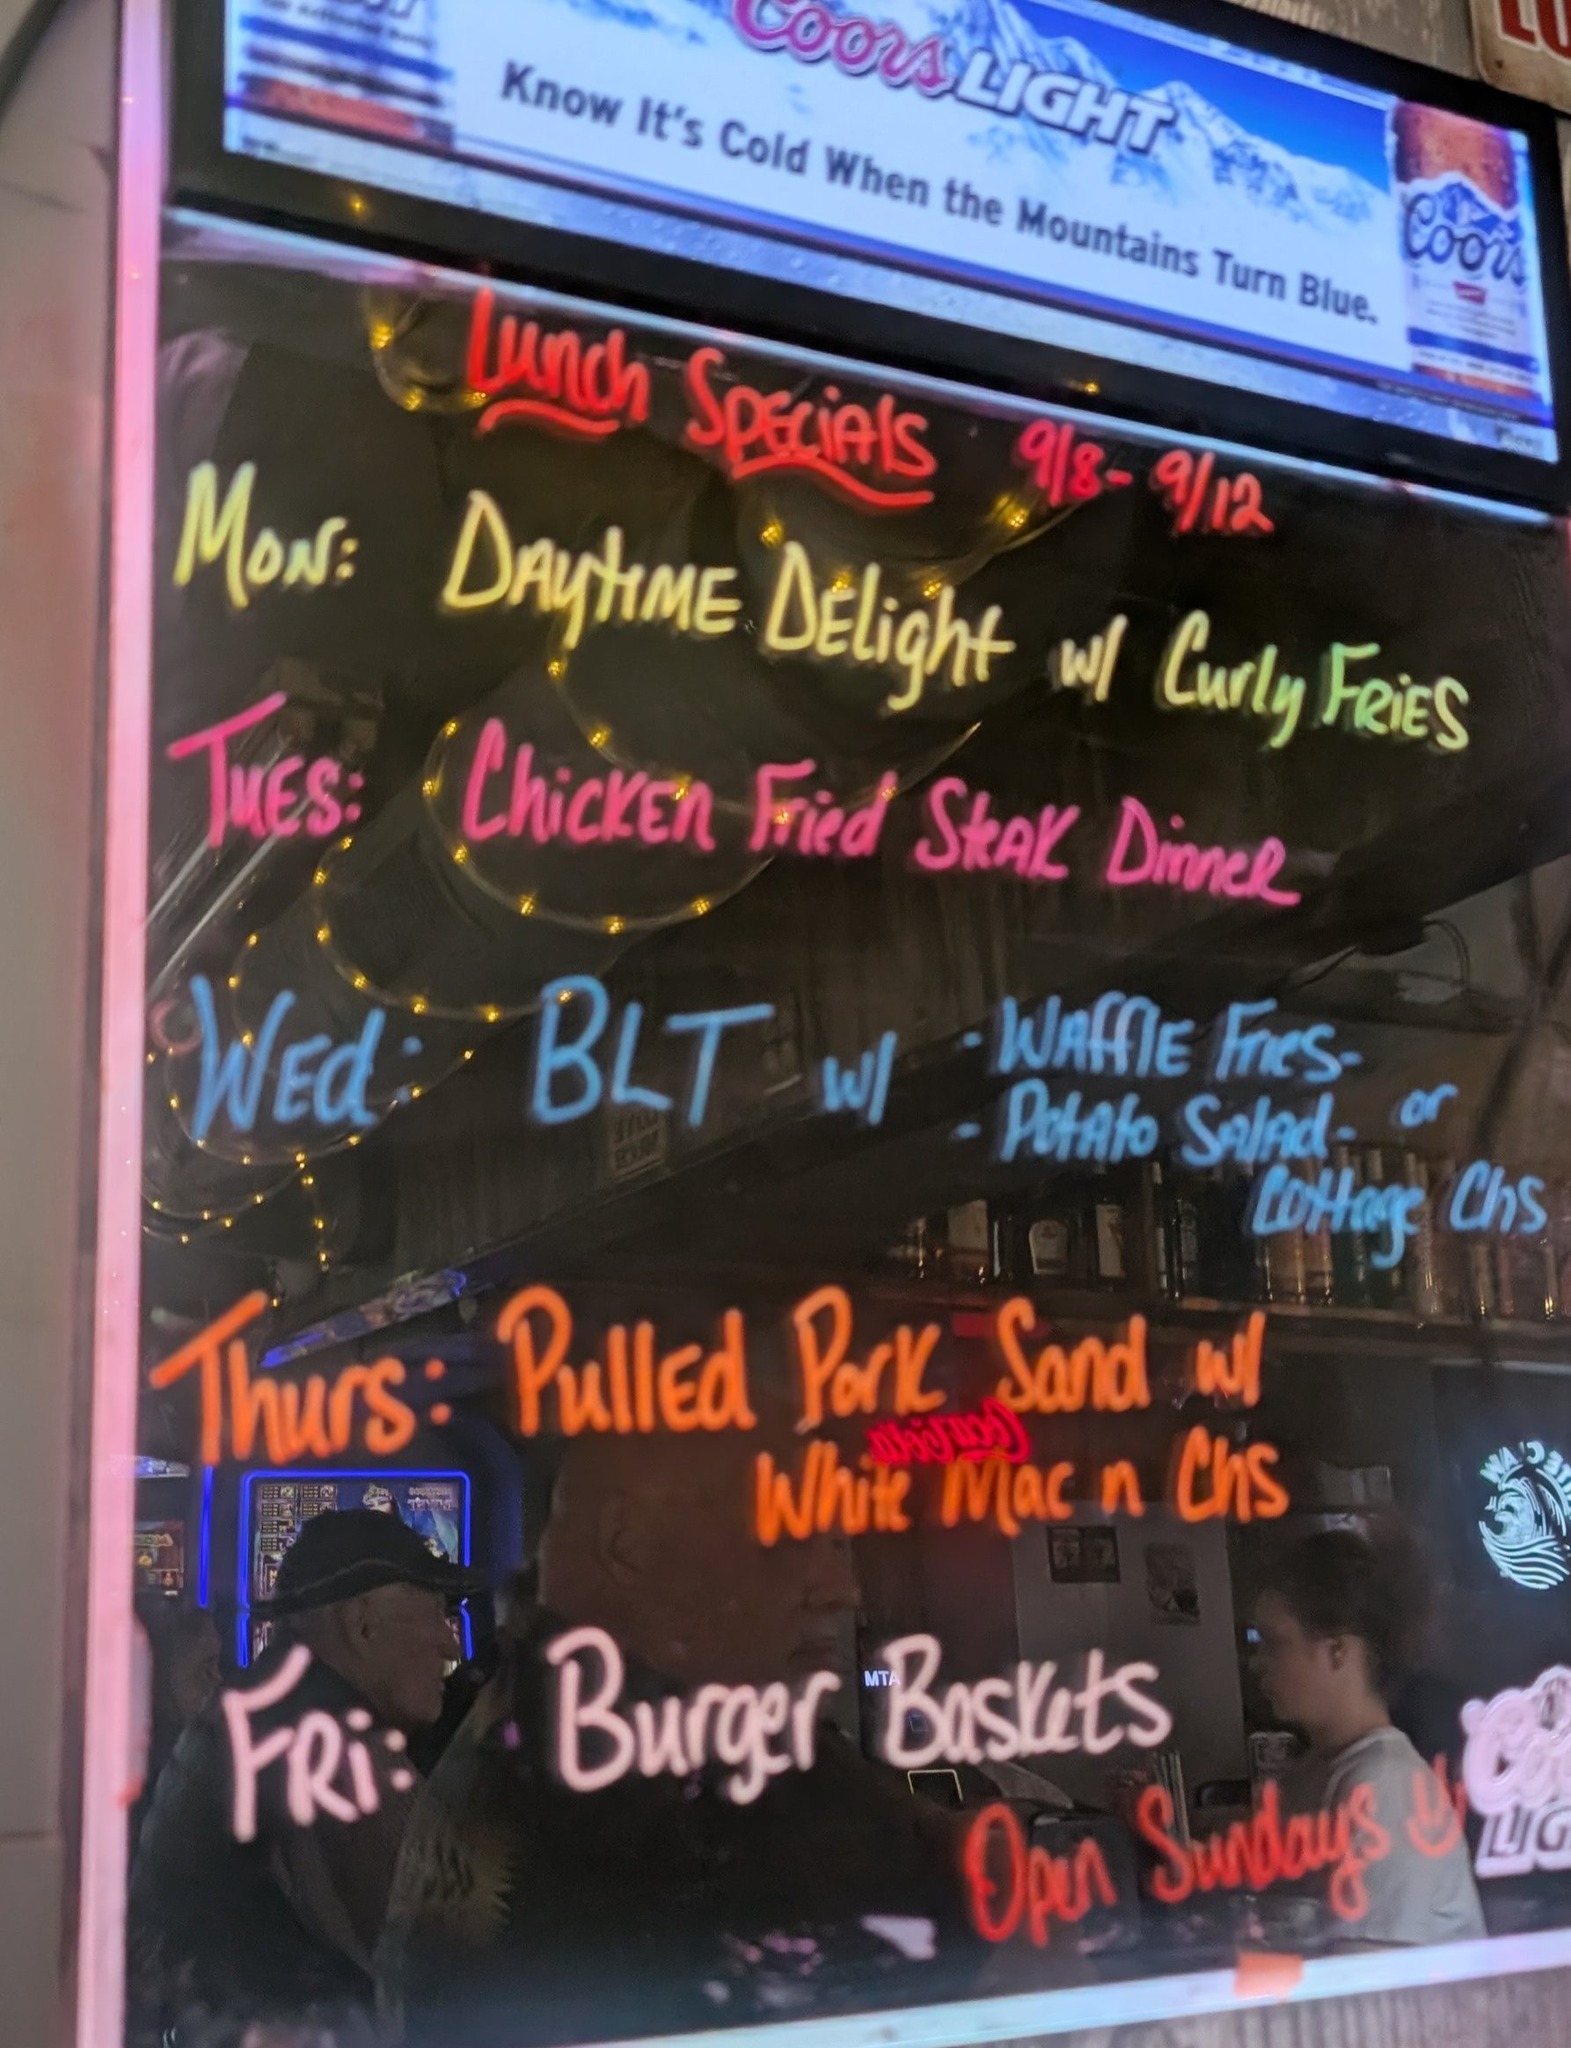 Coors LIGHT
Know It's Cold When the Mountains Turn Blue.
Coors
Lunch Specials 9/8- 9/12
Mon: Daytime Delight w/ Curly Fries
Tues: Chicken Fried Steak Dinner
Wed: BLT w/ - Waffle Fries-
- Potato Salad- or
Cottage Chs
Thurs: Pulled Pork Sand w/
White Mac n Chs
Coca-Cola
Fri: Burger Baskets
MTA
Open Sundays
Coors
LIG